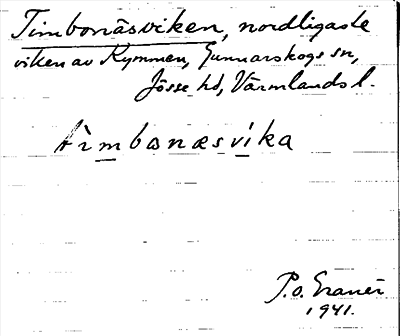 Timbonäsviken, nordligaste
viken av Kymmen, Gunnarskogs sn,
Jösse hd, Värmlands l.
tìmbonæsvika
P.o. Granér
1941.